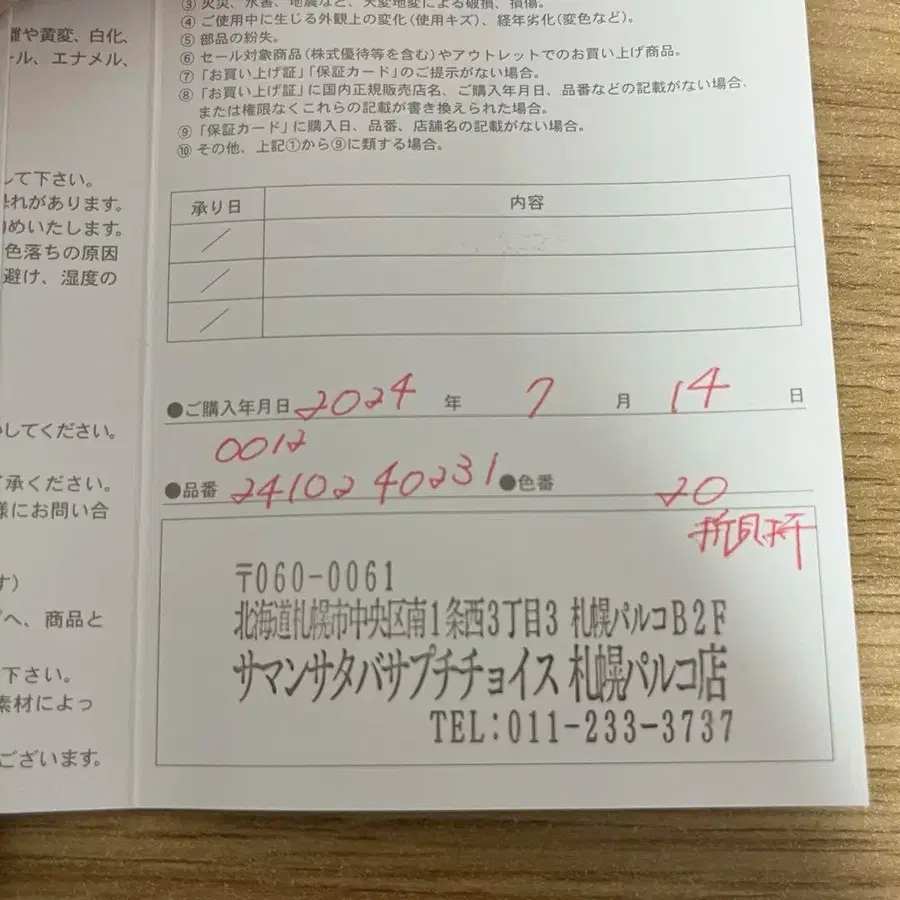 や黄変、白化、
ール、エナメル、
して下さい。
れがあります。
めいたします。
色落ちの原因
避け、湿度の
してください。
承ください。
様にお問い合
す)
へ、商品と
下さい。
素材によっ
ございます。
③ 火災、水害、地震など、天変地変による破損、損傷。
④ ご使用中に生じる外観上の変化(使用キズ)、経年劣化(変色など)。
⑤ 部品の紛失。
⑥ セール対象商品(株式優待等を含む)やアウトレットでのお買い上げ商品。
⑦ 「お買い上げ証」「保証カード」のご提示がない場合。
⑧ 「お買い上げ証」に国内正規販売店名、ご購入年月日、品番などの記載がない場合、
または権限なくこれらの記載が書き換えられた場合。
⑨ 「保証カード」に購入日、品番、店舗名の記載がない場合。
⑩ その他、上記①から⑨に類する場合。
承り日 内容
／
／
／
●ご購入年月日 2024 年 7 月 14 日
0012
●品番 24102 40231 ●色番 20
〒060-0061
北海道札幌市中央区南1条西3丁目3 札幌パルコB2F
サマンサタバサプチチョイス 札幌パルコ店
TEL:011-233-3737